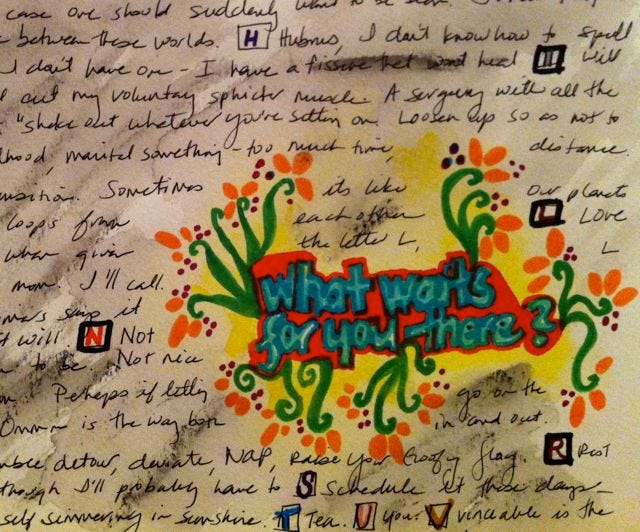 case one should suddenly want to be seen.
between these worlds. H Hubris, I don't know how to spell
I don't have one - I have a fissure that won't heal will
out my voluntary sphincter muscle. A surgery with all the
"shake out whatever you're sitting on. Loosen up so as not to
hood, marital something - too much time, distance.
Sometimes its like our planets
loops from each other L Love
when given the letter L, L
mom. I'll call.
it
will. N Not
to be. Not nice
Perhaps if
go on the
Ommm is the way both in and out.
What waits
for you - there?
detour, deviate, NAP, raise your Goofy flag. R Rest
though I'll probably have to S Schedule it these days -
self simmering in sunshine. T Tea. U You. V Vincable is the